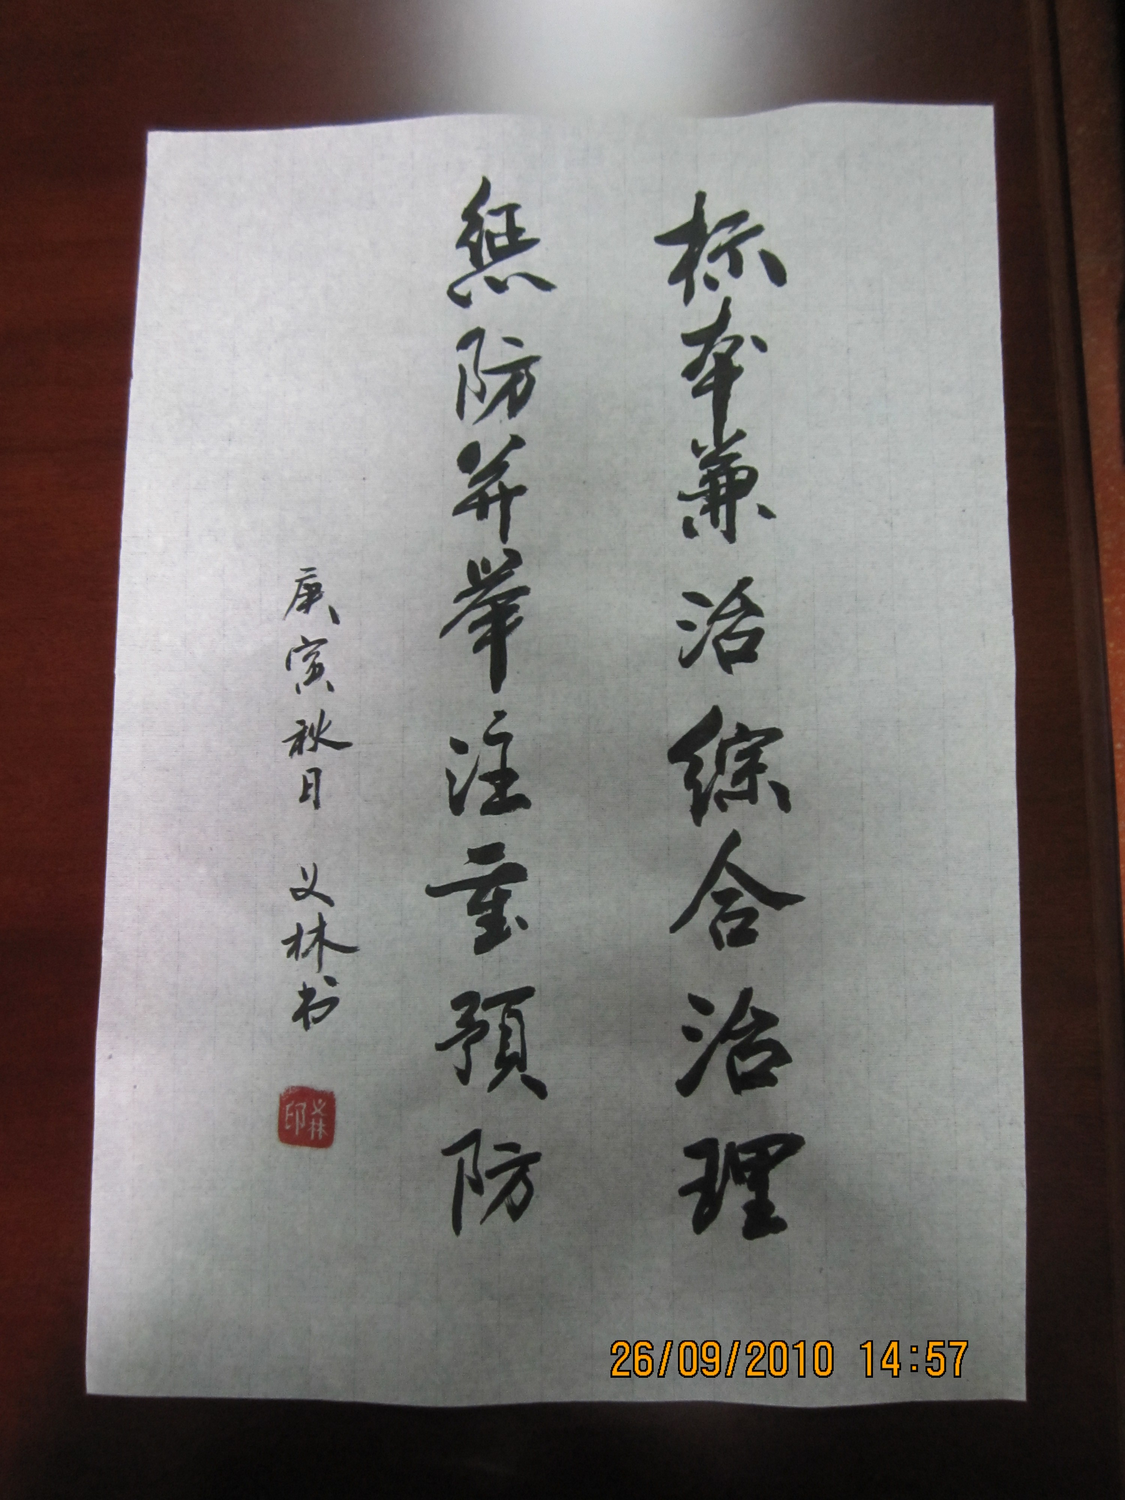 标本兼治综合治理
惩防并举注重预防
庚寅秋日 义林书
义林印
26/09/2010 14:57